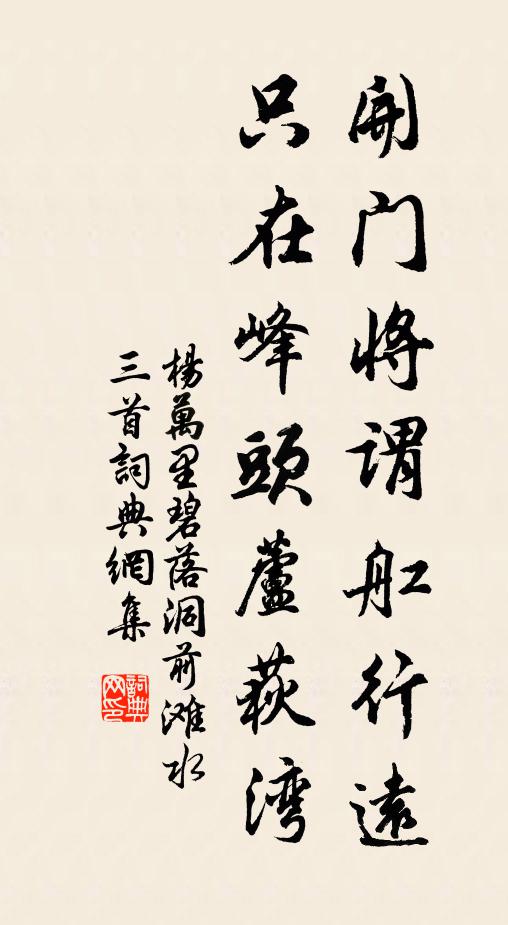 開門將謂舡行遠
只在峰頭蘆荻湾
楊萬里碧落洞前滩水
三首詞典網集
詞典
网印